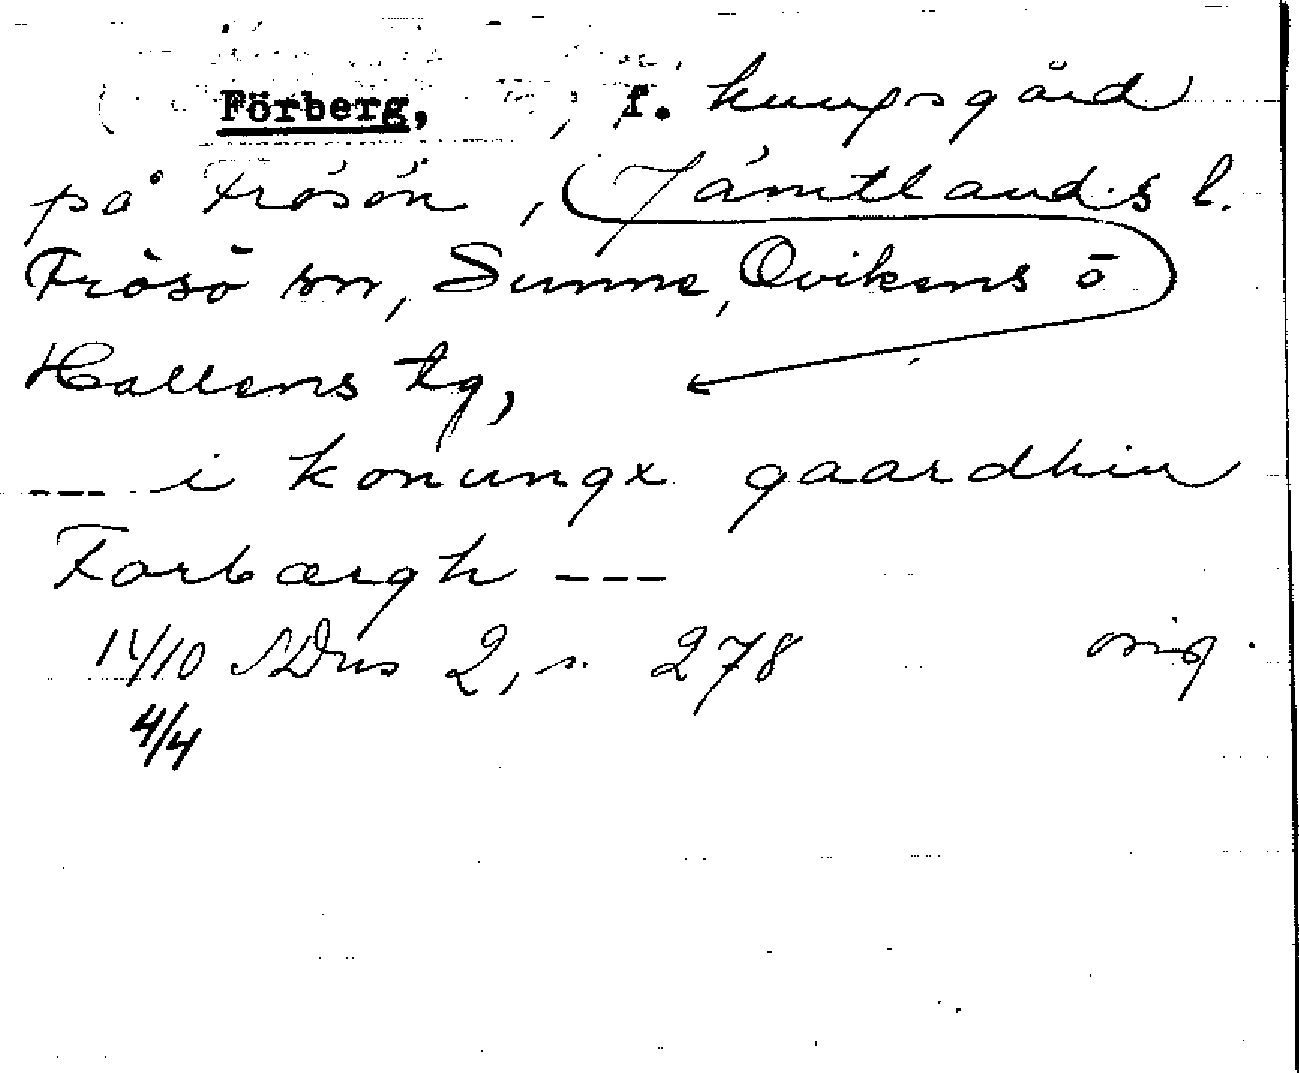 Förberg, f. kungsgård
på Frösön, Jämtlands l.
Frösö sn, Sunne, Ovikens o
Hallens tg,
--- i konungx gaardhin
Forbærgh ---
14/10 SDns 2, s. 278 orig.
4/4